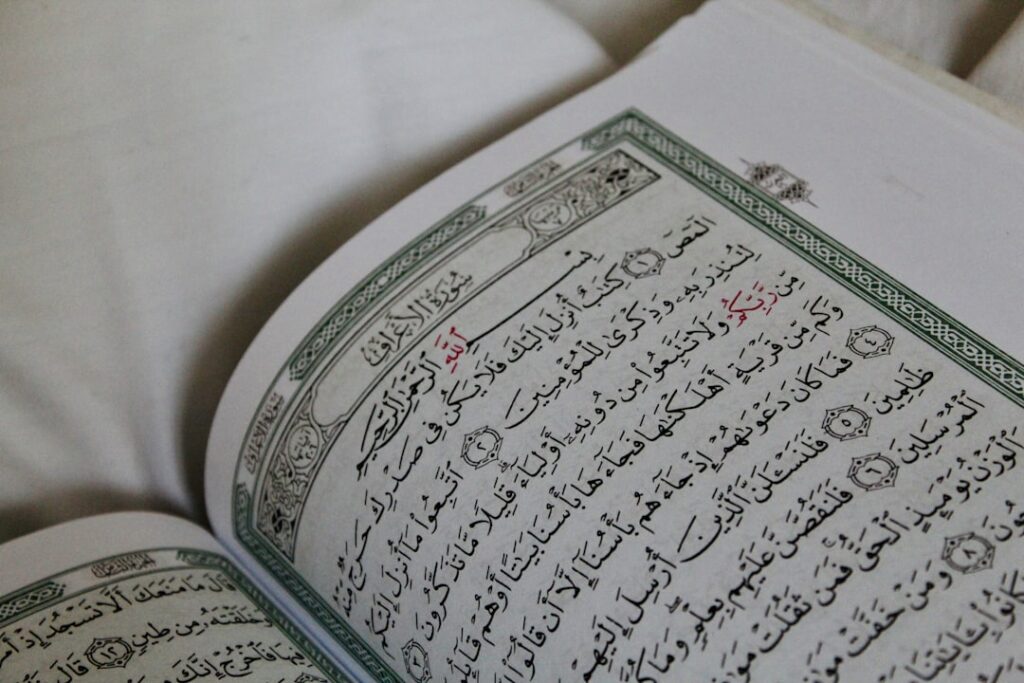 سُورَةُ الأَعْرَافِ
سُورَةُ الأَعْرَافِ
بِسْمِ ٱللَّهِ ٱلرَّحْمَٰنِ ٱلرَّحِيمِ
الٓمٓصٓ ١ كِتَٰبٌ أُنزِلَ إِلَيْكَ فَلَا يَكُن فِى صَدْرِكَ حَرَجٌ مِّنْهُ
لِتُنذِرَ بِهِۦ وَذِكْرَىٰ لِلْمُؤْمِنِينَ ٢ ٱتَّبِعُوا۟ مَآ أُنزِلَ إِلَيْكُم
مِّن رَّبِّكُمْ وَلَا تَتَّبِعُوا۟ مِن دُونِهِۦٓ أَوْلِيَآءَ قَلِيلًا مَّا تَذَكَّرُونَ ٣
وَكَم مِّن قَرْيَةٍ أَهْلَكْنَٰهَا فَجَآءَهَا بَأْسُنَا بَيَٰتًا أَوْ هُمْ
٤ فَمَا كَانَ دَعْوَىٰهُمْ إِذْ جَآءَهُم بَأْسُنَآ إِلَّآ أَن قَالُوٓا۟
ظَٰلِمِينَ ٥ فَلَنَسْـَٔلَنَّ ٱلَّذِينَ أُرْسِلَ إِلَيْهِمْ
ٱلْمُرْسَلِينَ ٦ فَلَنَقُصَّنَّ عَلَيْهِم بِعِلْمٍ وَمَا
وَٱلْوَزْنُ يَوْمَئِذٍ ٱلْحَقُّ فَمَن ثَقُلَتْ
٨ وَمَنْ خَفَّتْ
كَانُوا۟ بِـَٔايَٰتِنَا
قَالَ مَا مَنَعَكَ أَلَّا تَسْجُدَ إِذْ
وَخَلَقْتَهُۥ مِن طِينٍ ١٢ قَالَ
فَٱخْرُجْ إِنَّكَ